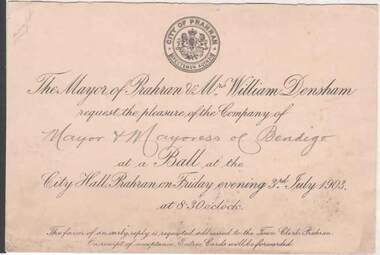 CITY OF PRAHRAN
The Mayor of Prahran & Mrs William Densham
request the pleasure of the Company of
Mayor & Mayoress of Bendigo
at a Ball at the
City Hall, Prahran, on Friday evening 3rd July 1903.
at 8.30 o'clock.
The favor of an early reply is requested addressed to the Town Clerk Prahran.
On receipt of acceptance Entrée Cards will be forwarded.